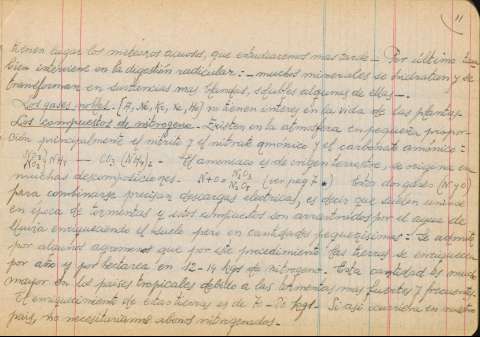 11
tienen lugar los meteoros acuosos, que estudiaremos mas tarde.- Por último tam-
bien interviene en la digestión radicular:- muchos minerales se hidratan y se
transforman en sustancias mas blandas, solubles algunas de ellas.-
Los gases nobles.- (A, Ne, Kr, Xe, He) ni tienen interes en la vida de las plantas.-
Los compuestos de nitrogeno.- Existen en la atmosfera en pequeña propor-
ción principalmente el nitrito y el nitrato amónico y el carbonato amónico:
NH4 — CO3 (NH4)2.- El amoniaco es de origen terrestre, se origina en
muchas descomposiciones.- N+O= N2O3 N2O5 (ver pag 7 ) Esto dos gases (N y O)
para combinarse precisan descargas electricas, es decir que suelen unirse
en época de tormentas y estos compuestos son arrastrados por el agua de
lluvia enriqueciendo el suelo pero en cantidades pequeñisimas:- Se admite
por algunos agronomos que por este procedimiento las tierras se enriquecen
por año y por hectarea en 12-14 kgs de nitrogeno.- Esta cantidad es mucho
mayor en los paises tropicales debido a las tormentas mas fuentes y frecuentes.-
El enriquecimiento de estas tierras es de kgs.- Si asi ocurriera en nuestro
pais, no necesitariamos abonos nitrogenados.-